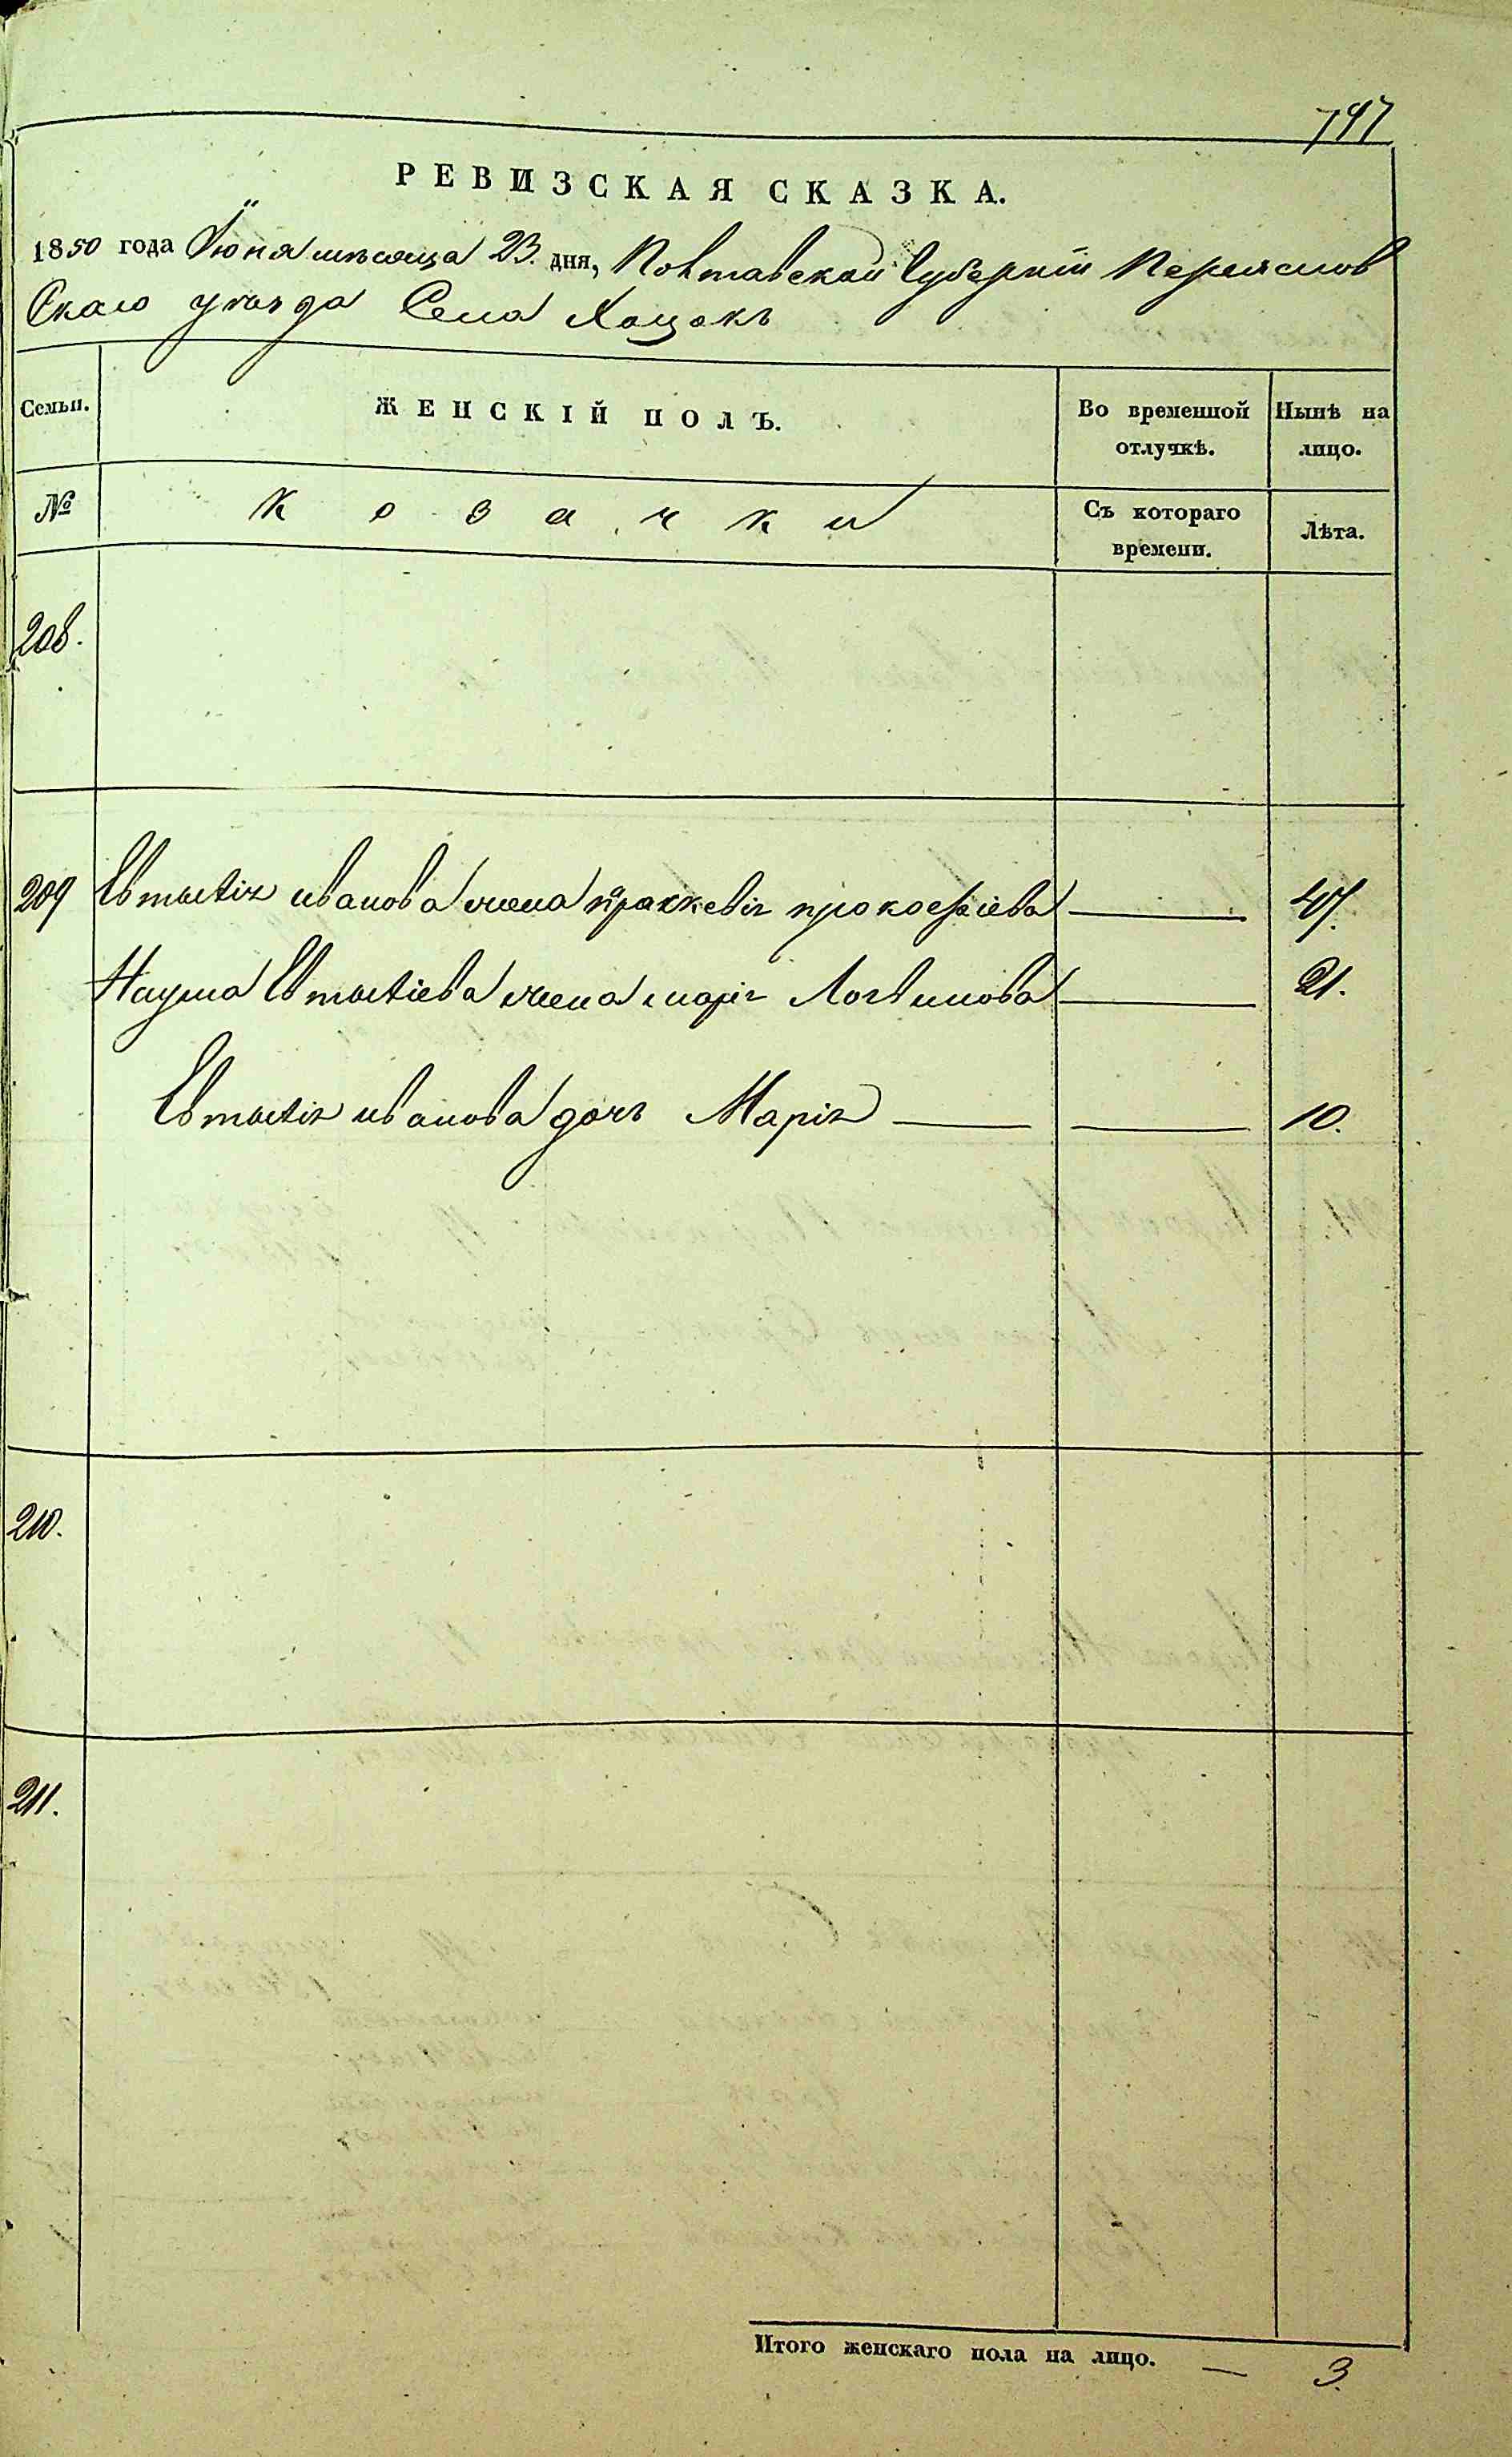 797
РЕВИЗСКАЯ СКАЗКА.
1850 года Іюня мѣсяца 23. дня, Полтавской Губерніи Переяслов
Скаго уѣзда Села Хоцокъ
Семьи. ЖЕНСКІЙ ПОЛЪ. Во временной отлучкѣ. Нынѣ на лицо.
№ Козачки Съ котораго времени. Лѣта.
208.
209 Евтыхія иванова жена прасковія прокофіева 47.
Наума Евтыхіева жена марія Логвинова 21.
Евтыхія иванова дочь Марія 10.
210.
211.
Итого женскаго пола на лицо. — 3.